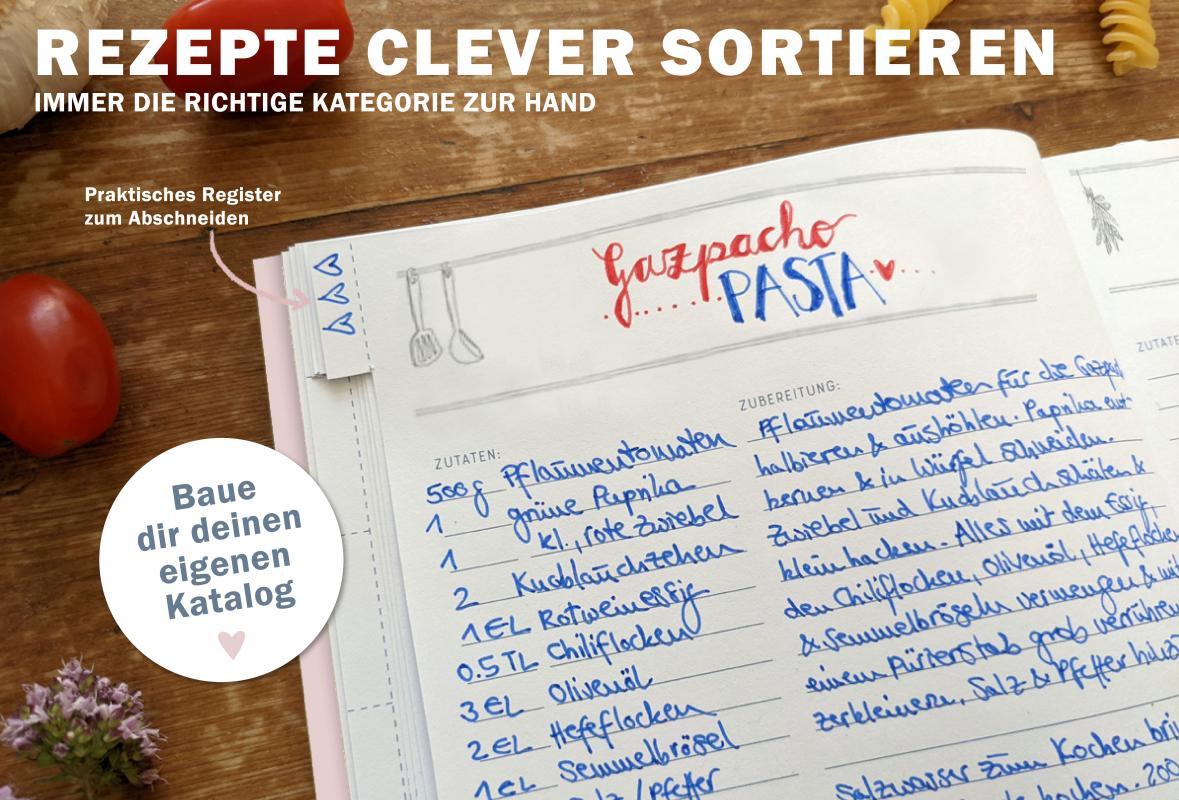 REZEPTE CLEVER SORTIEREN
IMMER DIE RICHTIGE KATEGORIE ZUR HAND
Praktisches Register
zum Abschneiden
Gazpacho
PASTA
Baue
dir deinen
eigenen
Katalog
ZUTATEN:
500g Pflaumentomaten
1 grüne Paprika
1 kl., rote Zwiebel
2 Knoblauchzehen
1 EL Rotweinessig
0.5 TL Chiliflocken
3 EL Olivenöl
2 EL Hefeflocken
1 EL Semmelbrösel
Salz / Pfeffer
ZUBEREITUNG:
Pflaumentomaten für die
halbieren & aushöhlen. Paprika ent-
kernen & in Würfel schneiden.
Zwiebel und Knoblauch schälen &
klein hacken. Alles mit dem Essig,
den Chiliflocken, Olivenöl, Hefeflocken
& Semmelbröseln vermengen & mit
einem Pürierstab grob
zerkleinern, Salz & Pfeffer
Salzwasser zum Kochen
kochen. 200